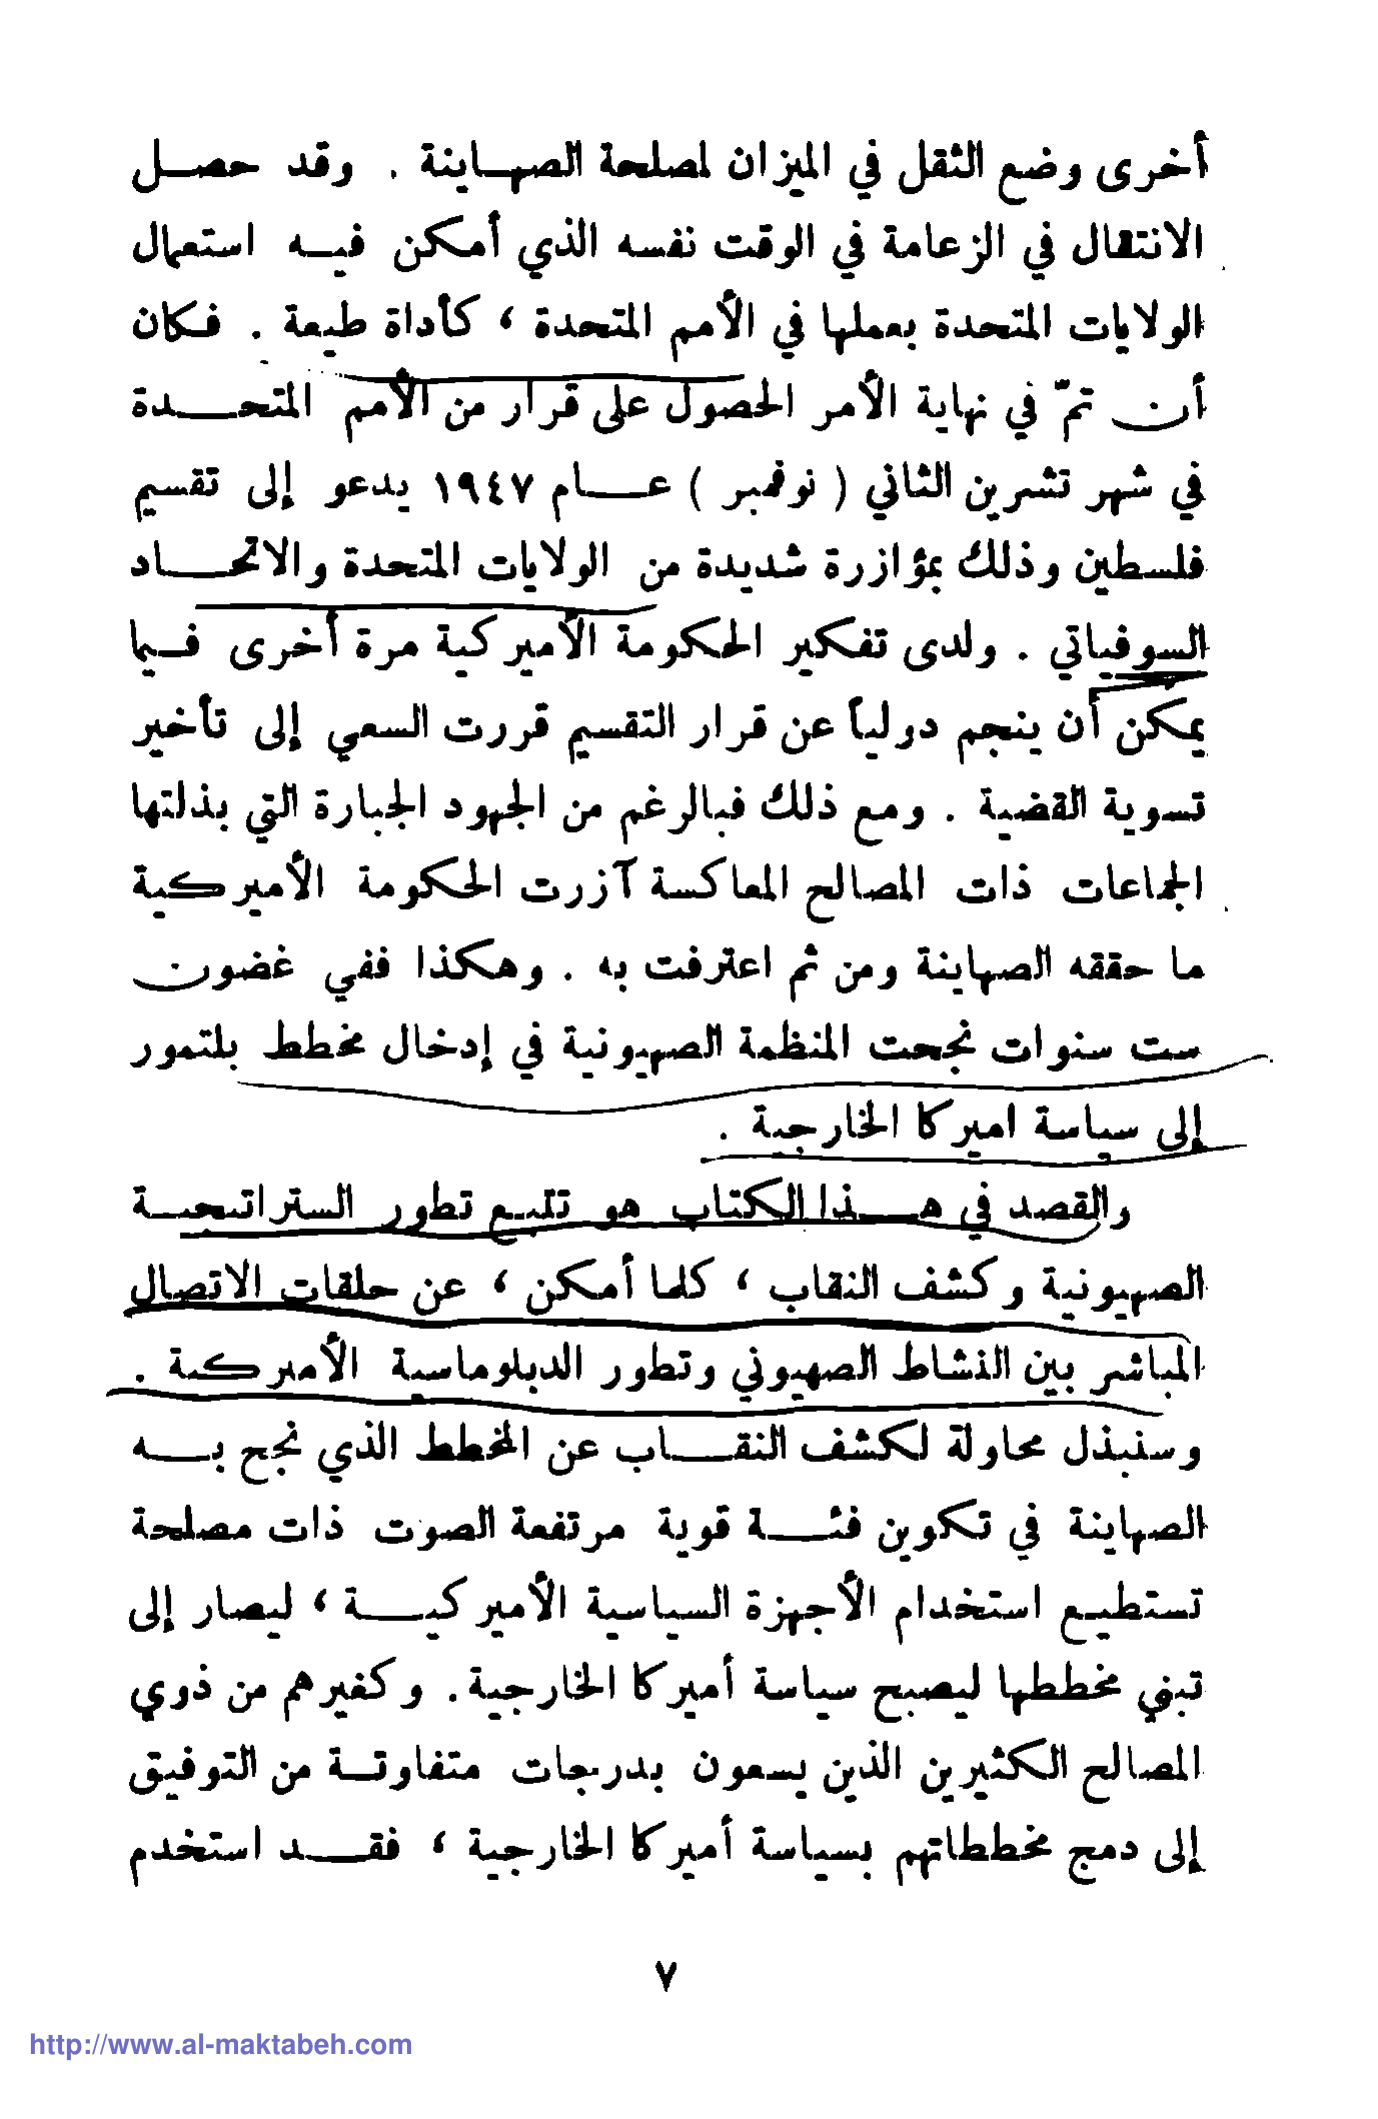 أخرى وضع الثقل في الميزان لمصلحة الصهاينة . وقد حصل
الانتقال في الزعامة في الوقت نفسه الذي أمكن فيه استعمال
الولايات المتحدة بعملها في الأمم المتحدة ، كأداة طيعة . فكان
أن تمّ في نهاية الأمر الحصول على قرار من الأمم المتحدة
في شهر تشرين الثاني ( نوفمبر ) عام ١٩٤٧ يدعو إلى تقسيم
فلسطين وذلك بمؤازرة شديدة من الولايات المتحدة والاتحاد
السوفياتي . ولدى تفكير الحكومة الأميركية مرة أخرى فيما
يمكن أن ينجم دولياً عن قرار التقسيم قررت السعي إلى تأخير
تسوية القضية . ومع ذلك فبالرغم من الجهود الجبارة التي بذلتها
الجماعات ذات المصالح المعاكسة آزرت الحكومة الأميركية
ما حققه الصهاينة ومن ثم اعترفت به . وهكذا ففي غضون
ست سنوات نجحت المنظمة الصهيونية في إدخال مخطط بلتمور
إلى سياسة اميركا الخارجية .
والقصد في هذا الكتاب هو تتبع تطور الستراتيجية
الصهيونية وكشف النقاب ، كلما أمكن ، عن حلقات الاتصال
المباشر بين النشاط الصهيوني وتطور الدبلوماسية الأميركية .
وسنبذل محاولة لكشف النقاب عن المخطط الذي نجح به
الصهاينة في تكوين فئة قوية مرتفعة الصوت ذات مصلحة
تستطيع استخدام الأجهزة السياسية الأميركية ، ليصار إلى
تبني مخططها ليصبح سياسة أميركا الخارجية . وكغيرهم من ذوي
المصالح الكثيرين الذين يسعون بدرجات متفاوتة من التوفيق
إلى دمج مخططاتهم بسياسة أميركا الخارجية ، فقد استخدم
٧
http://www.al-maktabeh.com